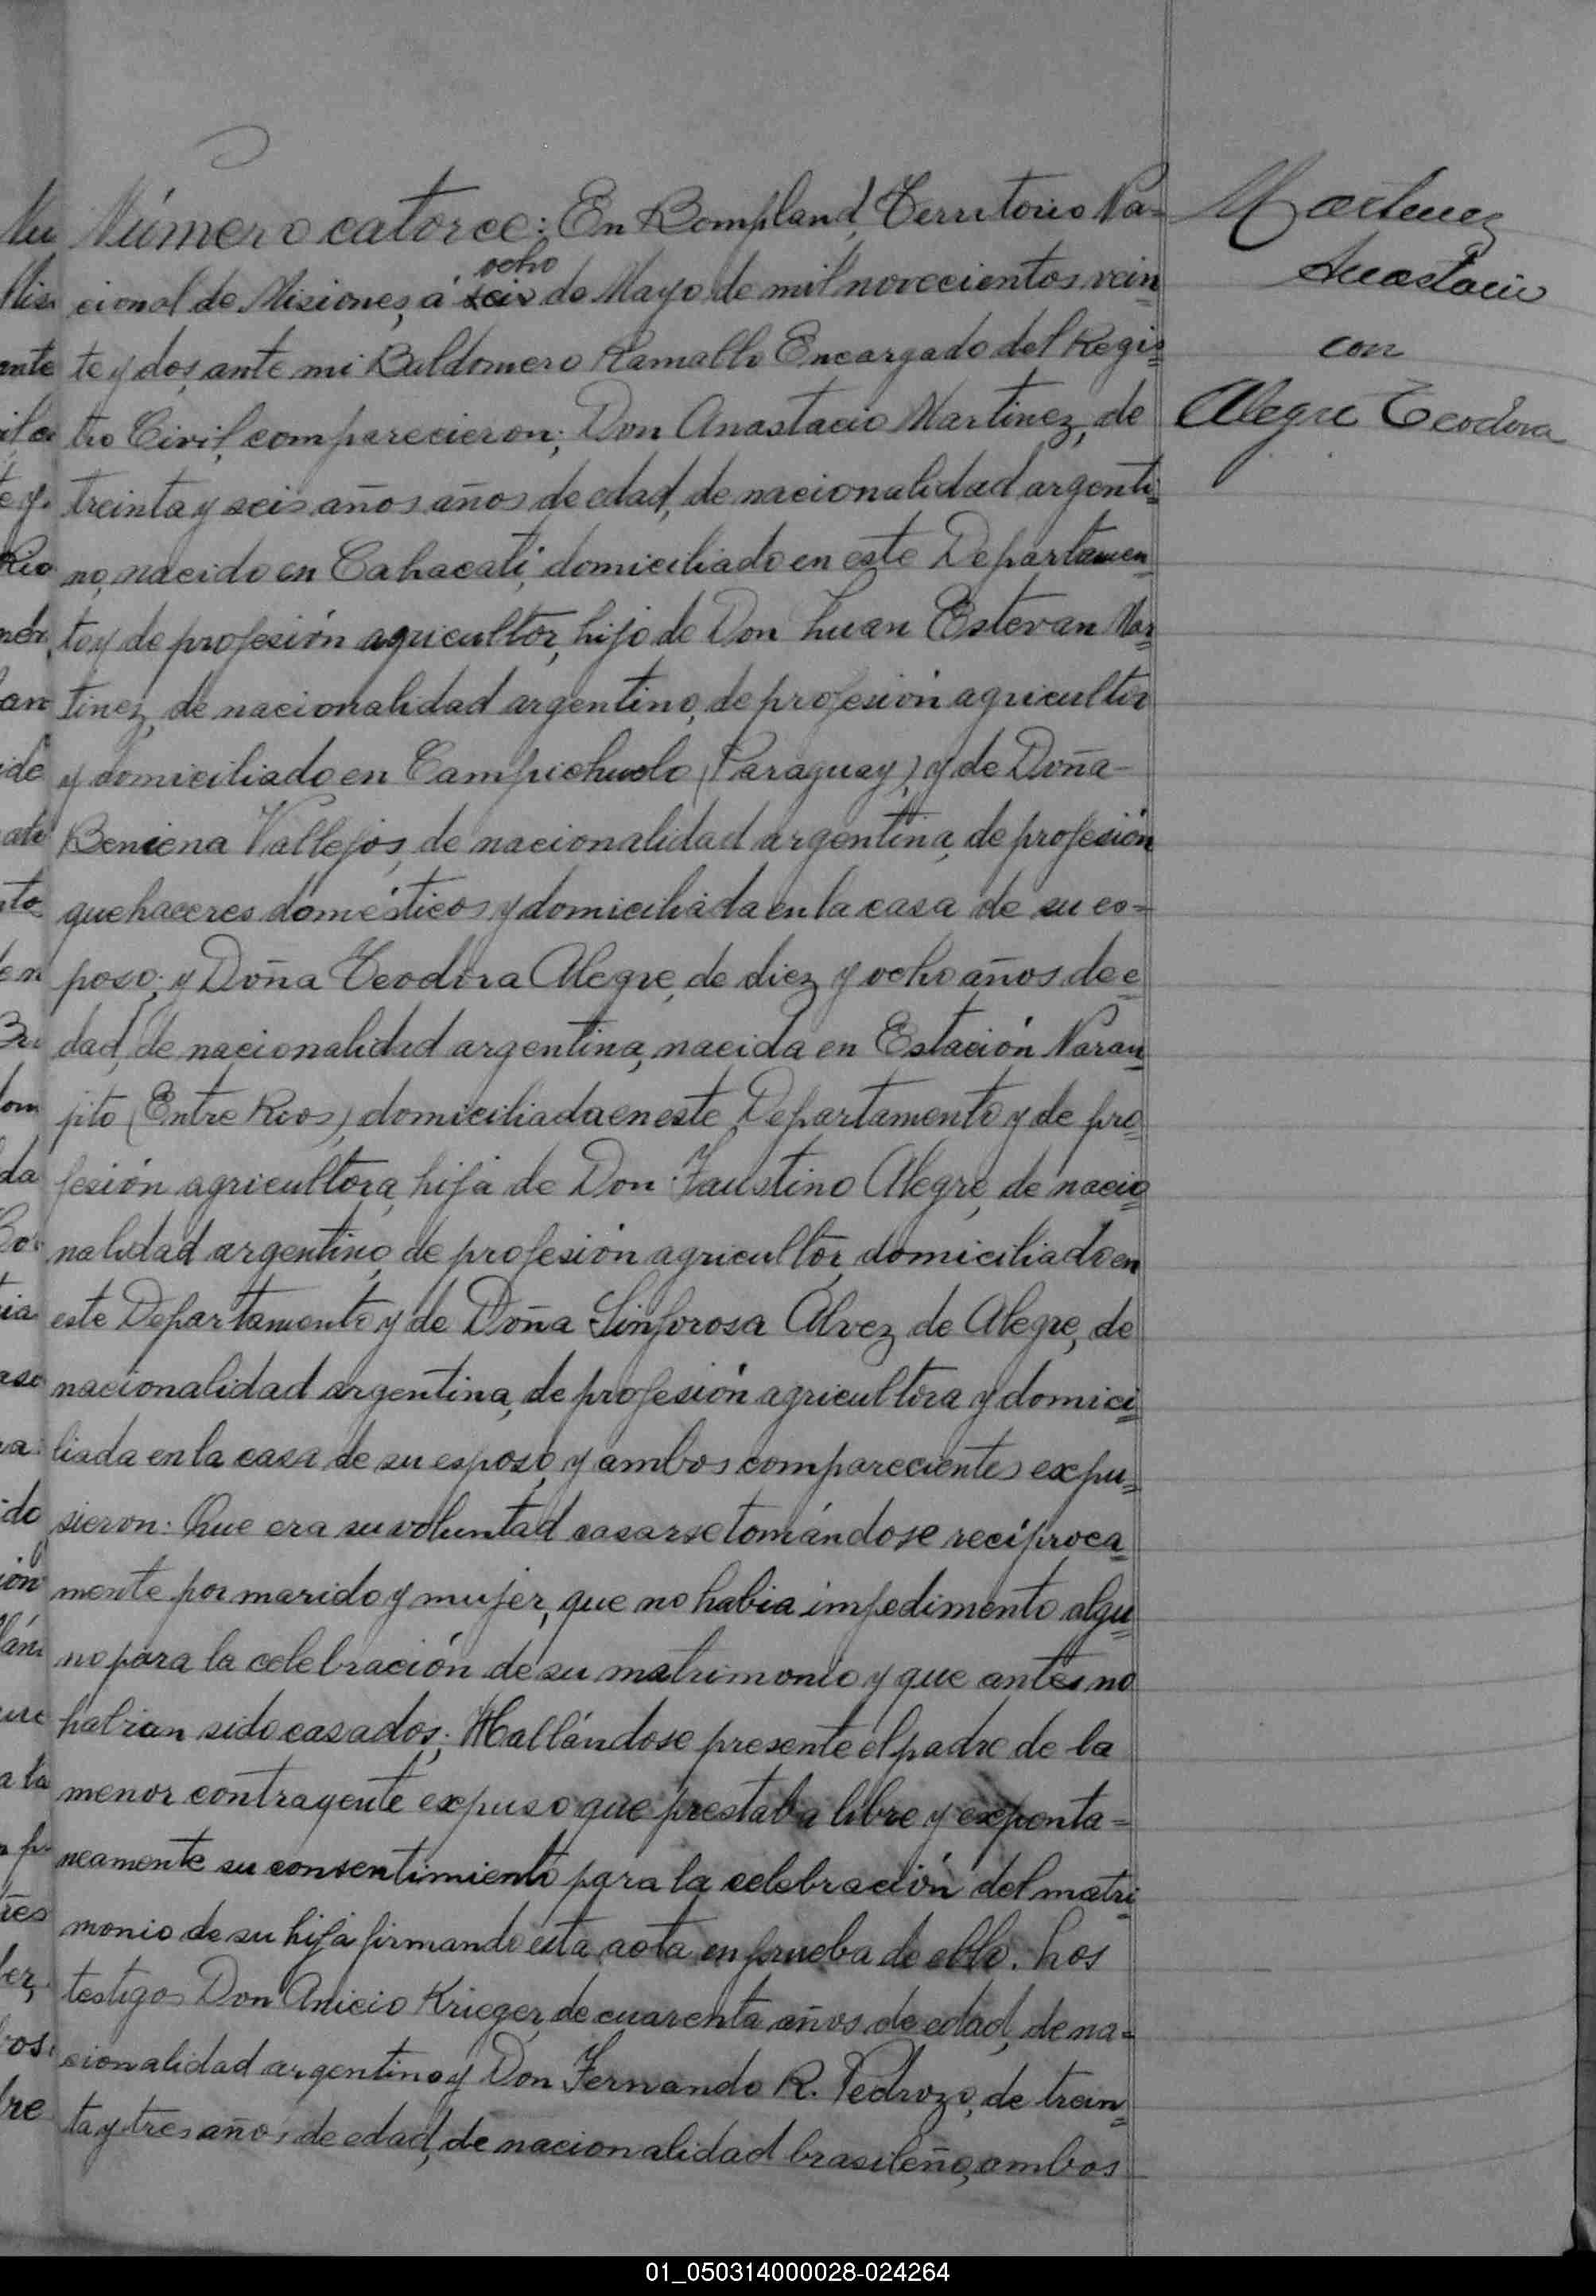 Número catorce: En Bompland, Territorio Na=
cional de Misiones, á seis ocho de Mayo de mil novecientos vein
te y dos, ante mi Baldomero Ramallo Encargado del Regis
tro Civil, comparecieron; Don Anastacio Martinez, de
treinta y seis años años de edad, de nacionalidad argenti=
no, nacido en Cahacatí, domiciliado en este Departamen
to y de profesión agricultor, hijo de Don Luan Estevan Mar
tinez, de nacionalidad argentino, de profesión agricultor
y domiciliado en Campichuelo (Paraguay), y de Doña
Beniena Vallejos, de nacionalidad argentina, de profesión
quehaceres domésticos y domiciliada en la casa de su es=
poso; y Doña Teodora Alegre, de diez y ocho años de e
dad, de nacionalidad argentina, nacida en Estación Naran
jito (Entre Rios), domiciliada en este Departamento y de pro
fesión agricultora, hija de Don Faustino Alegre, de nacio
nalidad argentino, de profesión agricultor, domiciliado en
este Departamento y de Doña Sinforosa Alvez de Alegre, de
nacionalidad argentina, de profesión agricultora y domici
liada en la casa de su esposo, y ambos comparecientes expu=
sieron: Que era su voluntad casarse tomándose recíproca
mente por marido y mujer, que no habia impedimento algu
no para la celebración de su matrimonio y que antes no
habian sido casados; Hallándose presente el padre de la
menor contrayente expuso que prestaba libre y exponta=
neamente su consentimiento para la celebración del matri
monio de su hija firmando esta acta en prueba de ello. Los
testigos Don Anicio Krieger, de cuarenta años de edad, de na=
cionalidad argentino y Don Fernando R. Pedrozo, de trein
ta y tres años de edad, de nacionalidad brasileño, ambos
Martinez
Anastacio
con
Alegre Teodora
01_050314000028-024264